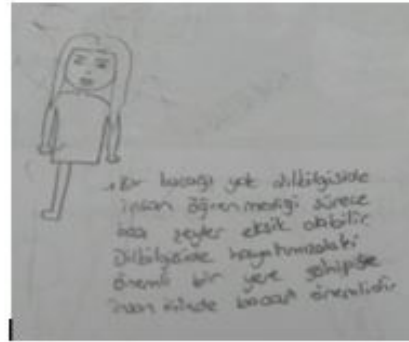 Bir bacağı yok dilbilgiside
insan öğrenmediği sürece
bazı şeyler eksik olabilir.
Dilbilgiside hayatımızdaki
önemli bir yere sahipse
insan içinde bacağı önemlidir